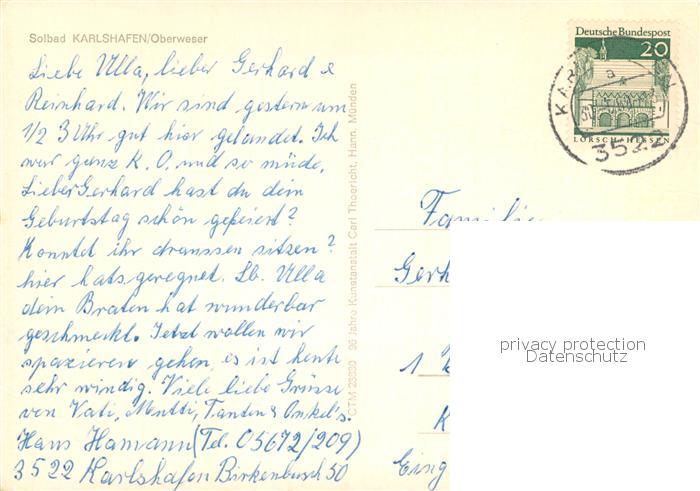 Solbad KARLSHAFEN/Oberweser
Liebe Ulla, lieber Gerhard &
Reinhard. Wir sind gestern um
1/2 3 Uhr gut hier gelandet. Ich
war ganz K.O. und so müde.
Lieber Gerhard hast du dein
Geburtstag schön gefeiert?
Konntet ihr draussen sitzen?
hier hats geregnet. Lb. Ulla
dein Braten hat wunderbar
geschmeckt. Jetzt wollen wir
spazieren gehen, es ist heute
sehr windig. Viele liebe Grüsse
von Vati, Mutti, Tanten & Onkel's.
Hans Hamann (Tel. 05672/209)
3522 Karlshafen Birkenbusch 50
CTM 23330 96 Jahre Kunstanstalt Carl Thoericht, Hann. Münden
Deutsche Bundespost
20
LORSCH/HESSEN
KAR
a
3522
Familie
Gerh
1 
K
Eing
privacy protection
Datenschutz